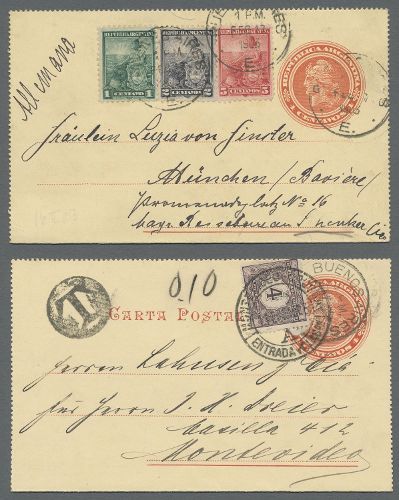 Allemano
REPUBLICA ARGENTINA
1 CENTAVO 1
REPUBLICA ARGENTINA
2 CENTAVOS 2
REPUBLICA ARGENTINA
5 CENTAVOS 5
1 P.M.
E.
REPUBLICA ARGENTINA
CENTAVOS
E.
Fräulein Luzia von
München / (Baviera)
Promenadeplatz No 16
bayr.
T
010
CARTA POSTAL
4
BUENOS
ENTRADA
CENTAVOS
Herren Lahusen & Cie
für Herrn J. H. Dreier
Casilla 412
Montevideo